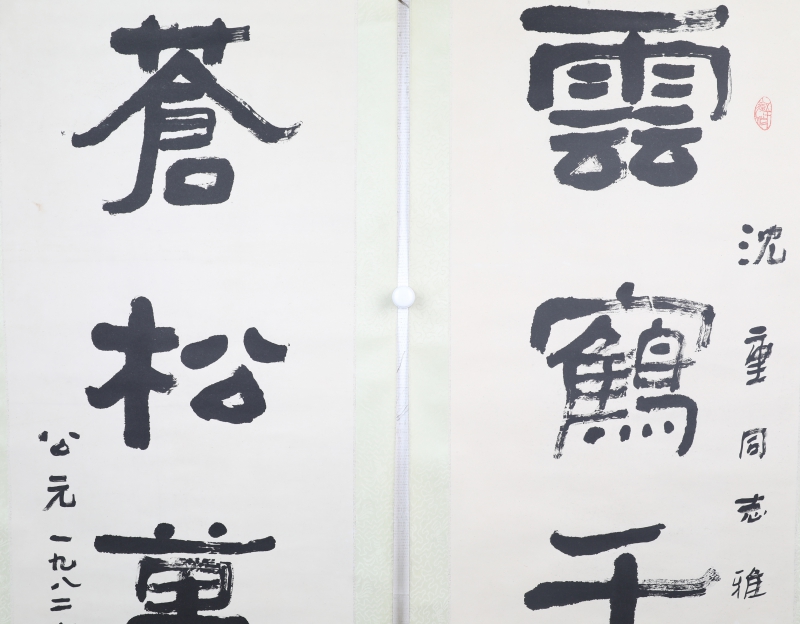 沈重同志雅
雲鶴千
蒼松萬
公元一九八二